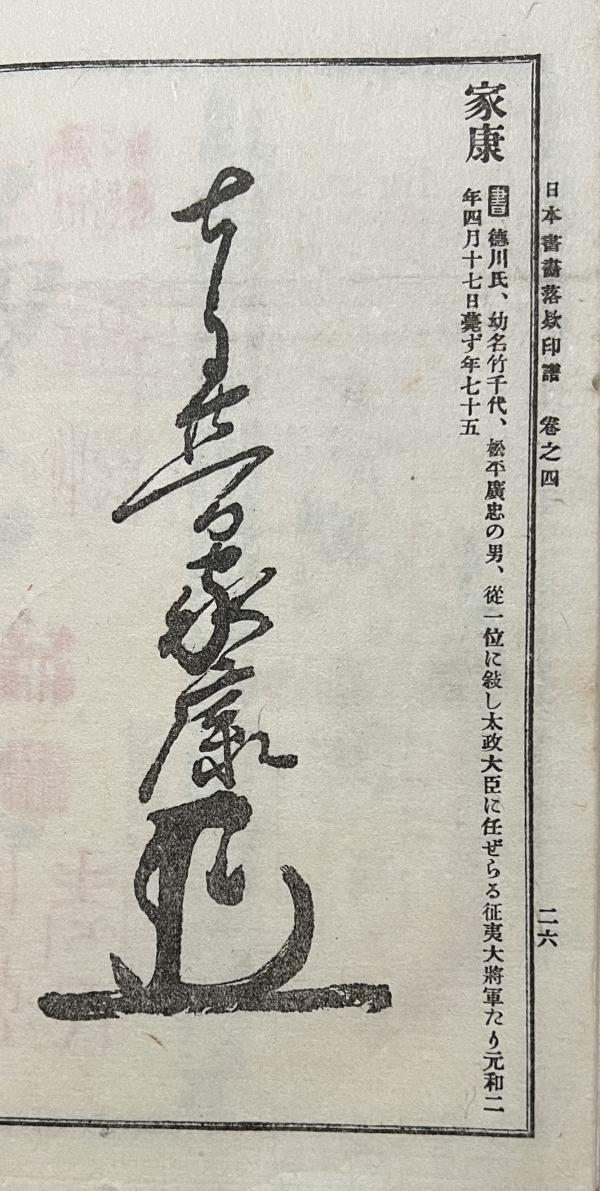 日本書畵落欵印譜 卷之四
二六
家康
書 德川氏、幼名竹千代、松平廣忠の男、從一位に敍し太政大臣に任ぜらる征夷大將軍たり元和二
年四月十七日薨ず年七十五
家康